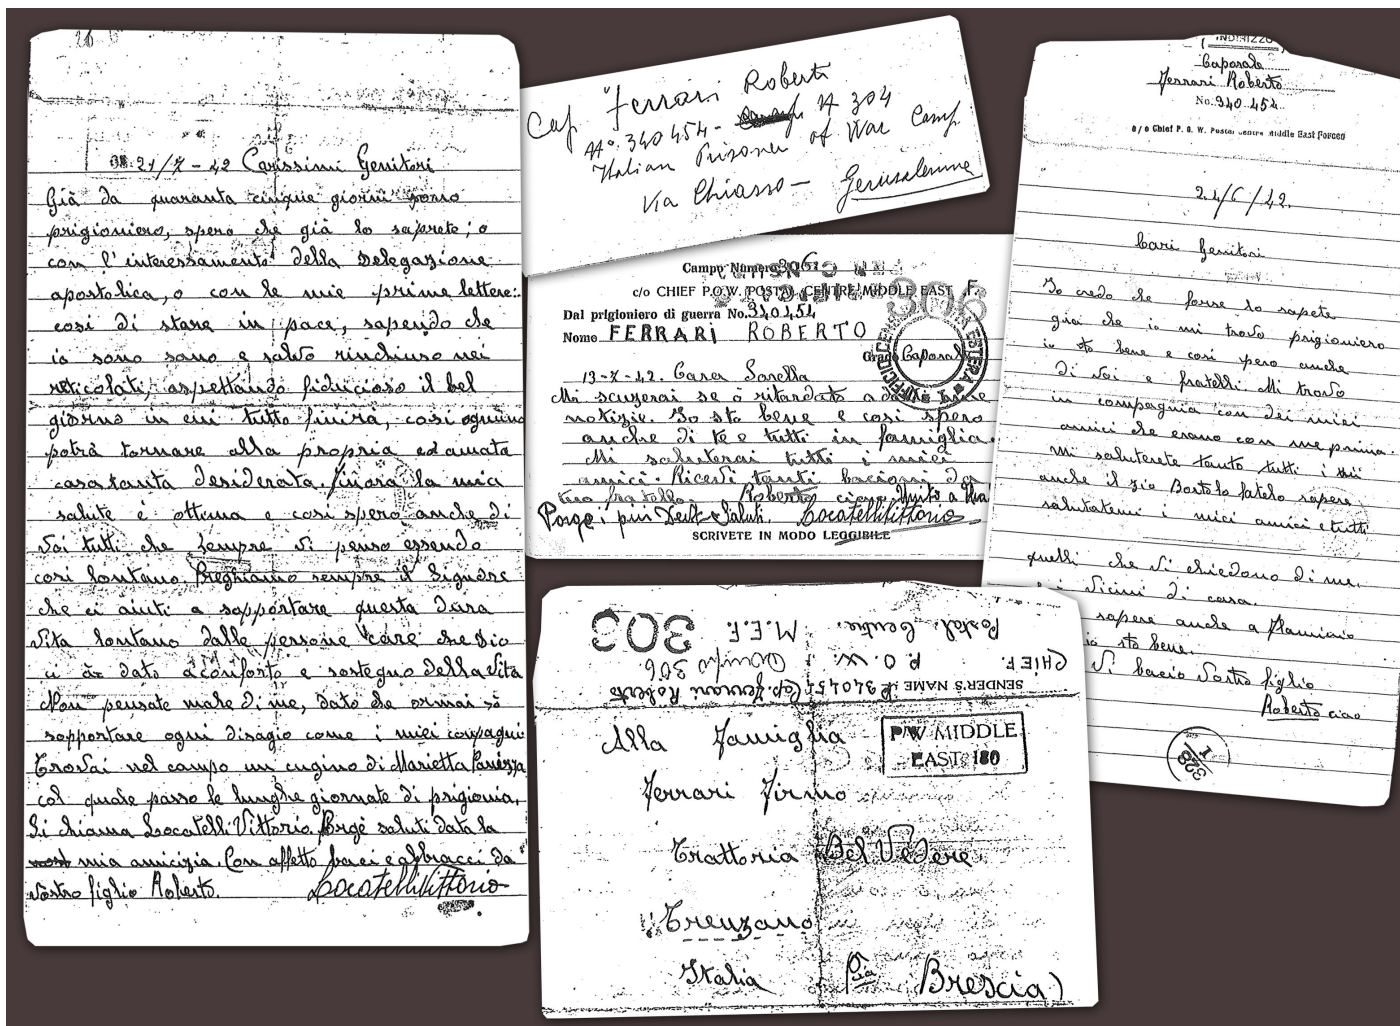 21/7-42 Carissimi Genitori
Già da quaranta cinque giorni sono
prigioniero, spero che già lo saprete; o
con l'interessamento della Delegazione
apostolica, o con le mie prime lettere:
così di stare in pace, sapendo che
io sono sano e salvo rinchiuso nei
reticolati, aspettando fiducioso il bel
giorno in cui tutto finirà, così ognuno
potrà tornare alla propria ed amata
casa tanta desiderata. Finora la mia
salute è ottima e così spero anche di
Voi tutti che sempre Vi penso essendo
così lontano. Preghiamo sempre il Signore
che ci aiuti a sopportare questa dura
Vita lontano dalle persone care che Dio
ci à dato a conforto e sostegno della Vita
Non pensate male di me, dato che ormai sò
sopportare ogni disagio come i miei compagni
Trovai nel campo un cugino di Marietta
col quale passo le lunghe giornate di prigionia,
Si chiama Locatelli Vittorio. Porge saluti data la
mia amicizia. Con affetto baci e abbracci da
Vostro figlio Roberto. Locatelli Vittorio
Cap Ferrari Roberti
N° 340454- N 304
Italian Prisoner of War Camp
Via Chiasso - Gerusalemme
Campo Numero 306
c/o CHIEF P.O.W. POSTAL CENTRE MIDDLE EAST F.
306
Dal prigioniero di guerra No. 340454
Nome FERRARI ROBERTO
Grado Caporale
13-7-42. Cara Sorella
Mi scuzerai se ò ritardato a
notizie. Io sto bene e così spero
anche di te e tutti in famiglia.
Mi saluterai tutti i miei
amici. Ricevi tanti bacioni da
tuo fratello. Roberto ciao
Porge i più Saluti. Locatelli Vittorio
SCRIVETE IN MODO LEGGIBILE
303
CHIEF. P.O.W. Postal. Centre. M.E.F.
Campo 306
SENDER'S NAME: 340454 Cap. Ferrari Roberto
Alla Famiglia
P/W MIDDLE
EAST 180
Ferrari Firmo
Trattoria Bel Vedere
Trenzano
Italia Brescia)
(INDIRIZZO
Caporale
Ferrari Roberto
No. 340454
c/o Chief P.O.W. Postal Centre Middle East Forces
24/6/42.
Cari Genitori
Io credo che forse lo sapete
già che io mi trovo prigioniero
io sto bene e così pero anche
di Voi e fratelli. Mi trovo
in compagnia con dei miei
amici che erano con me prima.
Mi saluterete tanto tutti i
anche il zio Bortolo fatelo sapere
salutatemi i miei amici e tutti
quelli che Vi chiedono di me.
e i Vicini di casa.
sapere anche a
io sto bene.
Vi bacio Vostro figlio
Roberto ciao
1
328